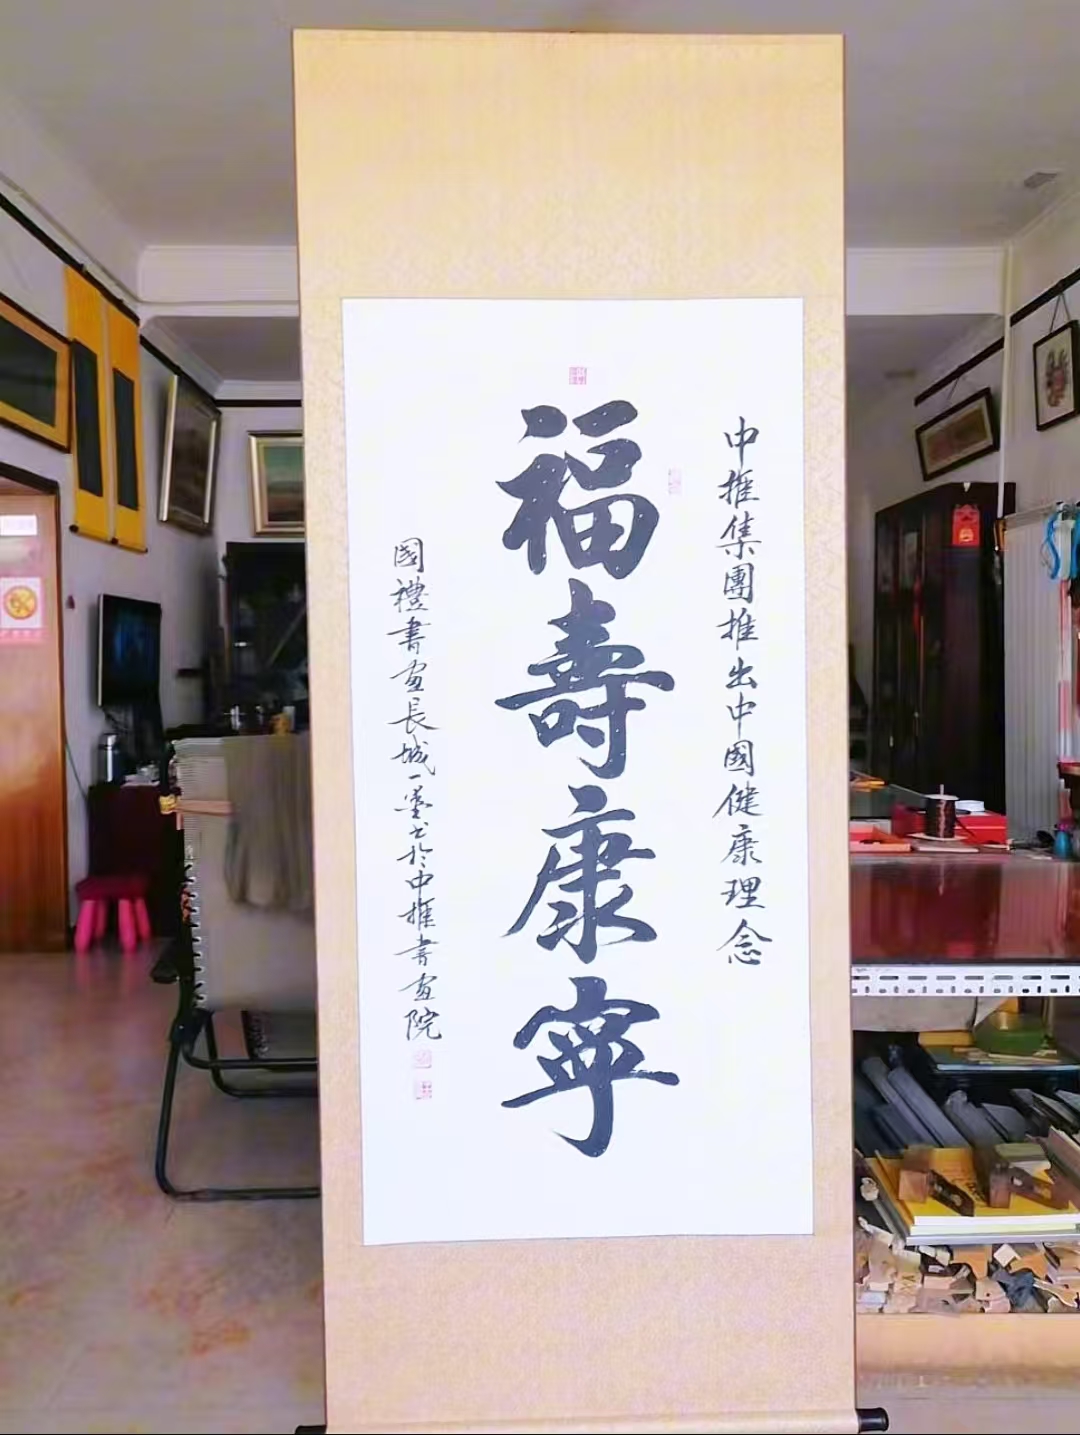 中推集團推出中國健康理念
福壽康寧
國禮書画長城一墨书於中推書画院